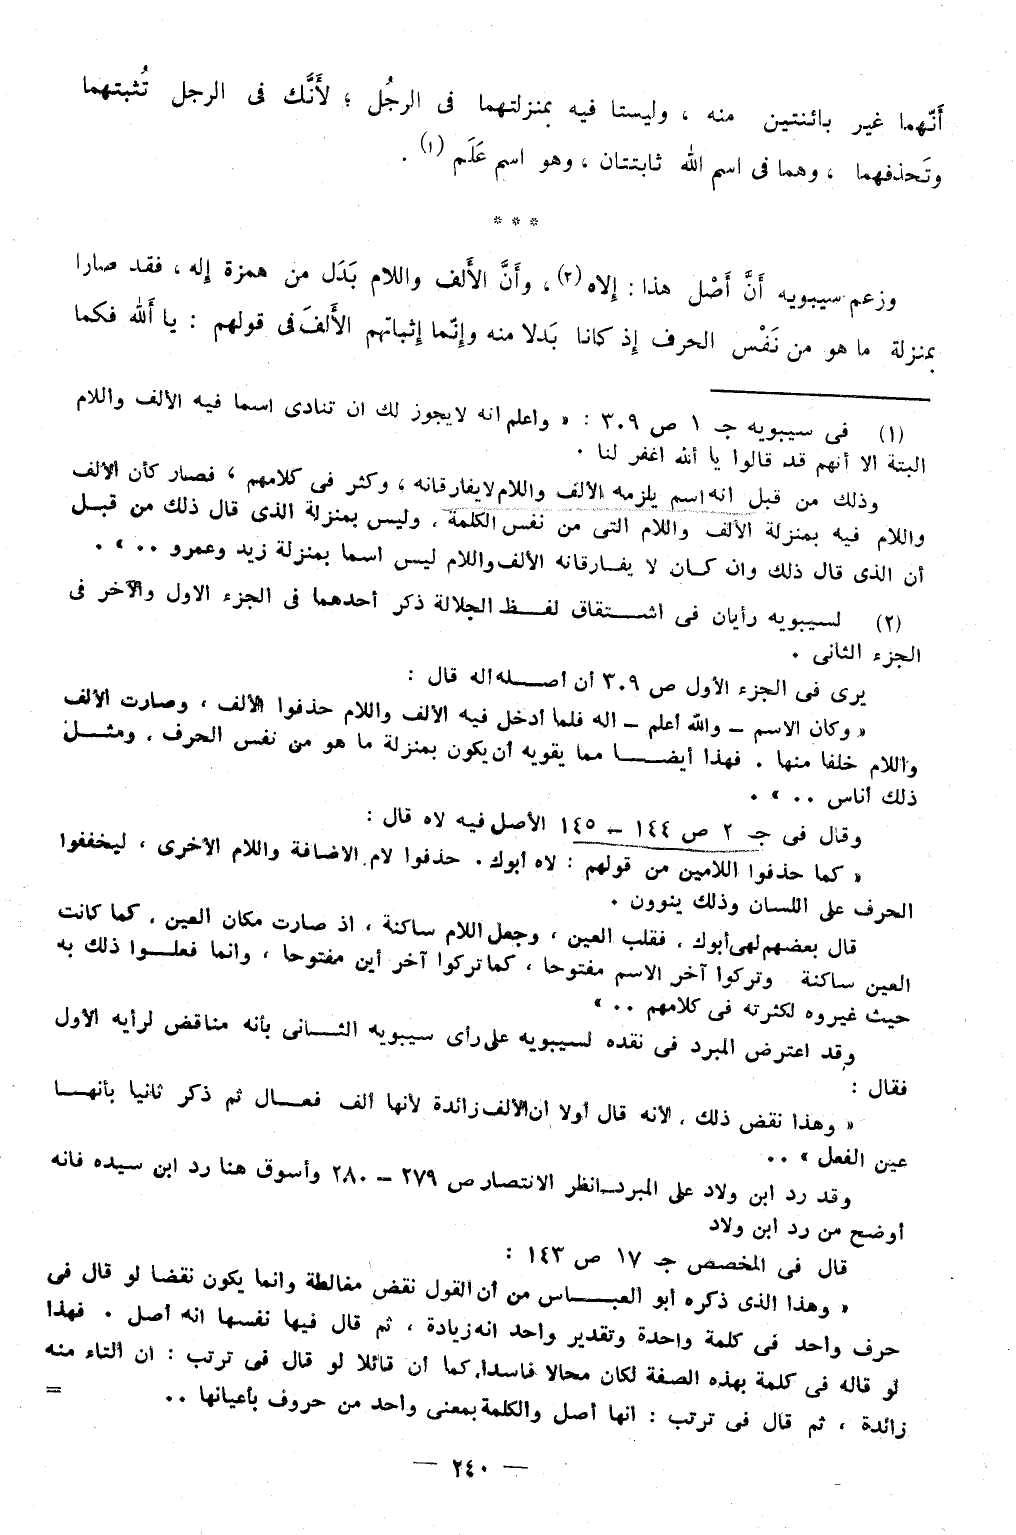 أَنَّهما غير بائنتين منه ، وليستا فيه بمنزلتهما فى الرجُل ؛ لأَنَّك فى الرجل تُثبتهما
وتَحذفهما ، وهما فى اسم الله ثابتتان ، وهو اسم عَلَم (١) .
* * *
وزعم سيبويه أَنَّ أَصْل هذا : إلاه (٢) ، وأَنَّ الأَلف واللام بَدَل من همزة إله ، فقد صارا
بمنزلة ما هو من نَفْس الحرف إذ كانا بَدلا منه وإنّما إثباتهم الأَلفَ فى قولهم : يا أَلله فكما
(١) فى سيبويه جـ ١ ص ٣٠٩ : « واعلم انه لايجوز لك ان تنادى اسما فيه الألف واللام
البتة الا أنهم قد قالوا يا ألله اغفر لنا .
وذلك من قبل انه اسم يلزمه الألف واللام لايفارقانه ، وكثر فى كلامهم ، فصار كأن الألف
واللام فيه بمنزلة الألف واللام التى من نفس الكلمة ، وليس بمنزلة الذى قال ذلك من قبل
أن الذى قال ذلك وان كان لا يفارقانه الألف واللام ليس اسما بمنزلة زيد وعمرو .. » .
(٢) لسيبويه رأيان فى اشتقاق لفظ الجلالة ذكر أحدهما فى الجزء الاول والآخر فى
الجزء الثانى .
يرى فى الجزء الأول ص ٣٠٩ أن أصله اله قال :
« وكان الاسم – والله أعلم – اله فلما أدخل فيه الألف واللام حذفوا الألف ، وصارت الألف
واللام خلفا منها . فهذا أيضا مما يقويه أن يكون بمنزلة ما هو من نفس الحرف ، ومثل
ذلك أناس .. » .
وقال فى جـ ٢ ص ١٤٤ – ١٤٥ الأصل فيه لاه قال :
« كما حذفوا اللامين من قولهم : لاه أبوك . حذفوا لام الاضافة واللام الأخرى ، ليخففوا
الحرف على اللسان وذلك ينوون .
قال بعضهم لهى أبوك ، فقلب العين ، وجعل اللام ساكنة ، اذ صارت مكان العين ، كما كانت
العين ساكنة وتركوا آخر الاسم مفتوحا ، كما تركوا آخر أين مفتوحا ، وانما فعلوا ذلك به
حيث غيروه لكثرته فى كلامهم .. »
وقد اعترض المبرد فى نقده لسيبويه على رأى سيبويه الثانى بأنه مناقض لرأيه الأول
فقال :
« وهذا نقض ذلك ، لأنه قال أولا ان الألف زائدة لأنها ألف فعال ثم ذكر ثانيا بأنها
عين الفعل » ..
وقد رد ابن ولاد على المبرد–انظر الانتصار ص ٢٧٩ – ٢٨٠ وأسوق هنا رد ابن سيده فانه
أوضح من رد ابن ولاد
قال فى المخصص جـ ١٧ ص ١٤٣ :
« وهذا الذى ذكره أبو العباس من أن القول نقض مغالطة وانما يكون نقضا لو قال فى
حرف واحد فى كلمة واحدة وتقدير واحد انه زيادة ، ثم قال فيها نفسها انه أصل . فهذا
لو قاله فى كلمة بهذه الصفة لكان محالا فاسدا، كما أن قائلا لو قال فى ترتب : ان التاء منه
زائدة ، ثم قال فى ترتب : انها أصل والكلمة بمعنى واحد من حروف بأعيانها ..
=
— ٢٤٠ —